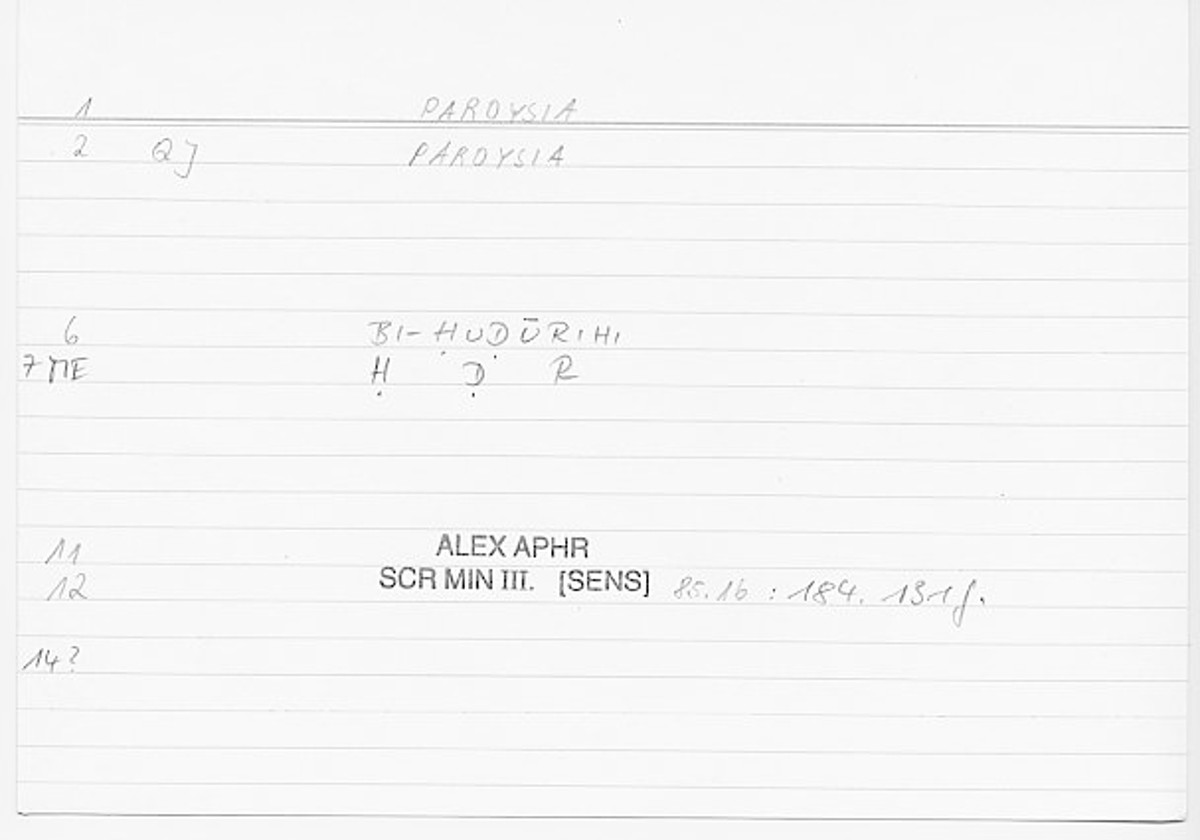 1 PAROYSIA
2 QJ PAROYSIA
6 BI-ḤUḌŪRIHI
7 ME Ḥ Ḍ R
11 ALEX APHR
12 SCR MIN III. [SENS] 85.16 : 184. 131f.
14?